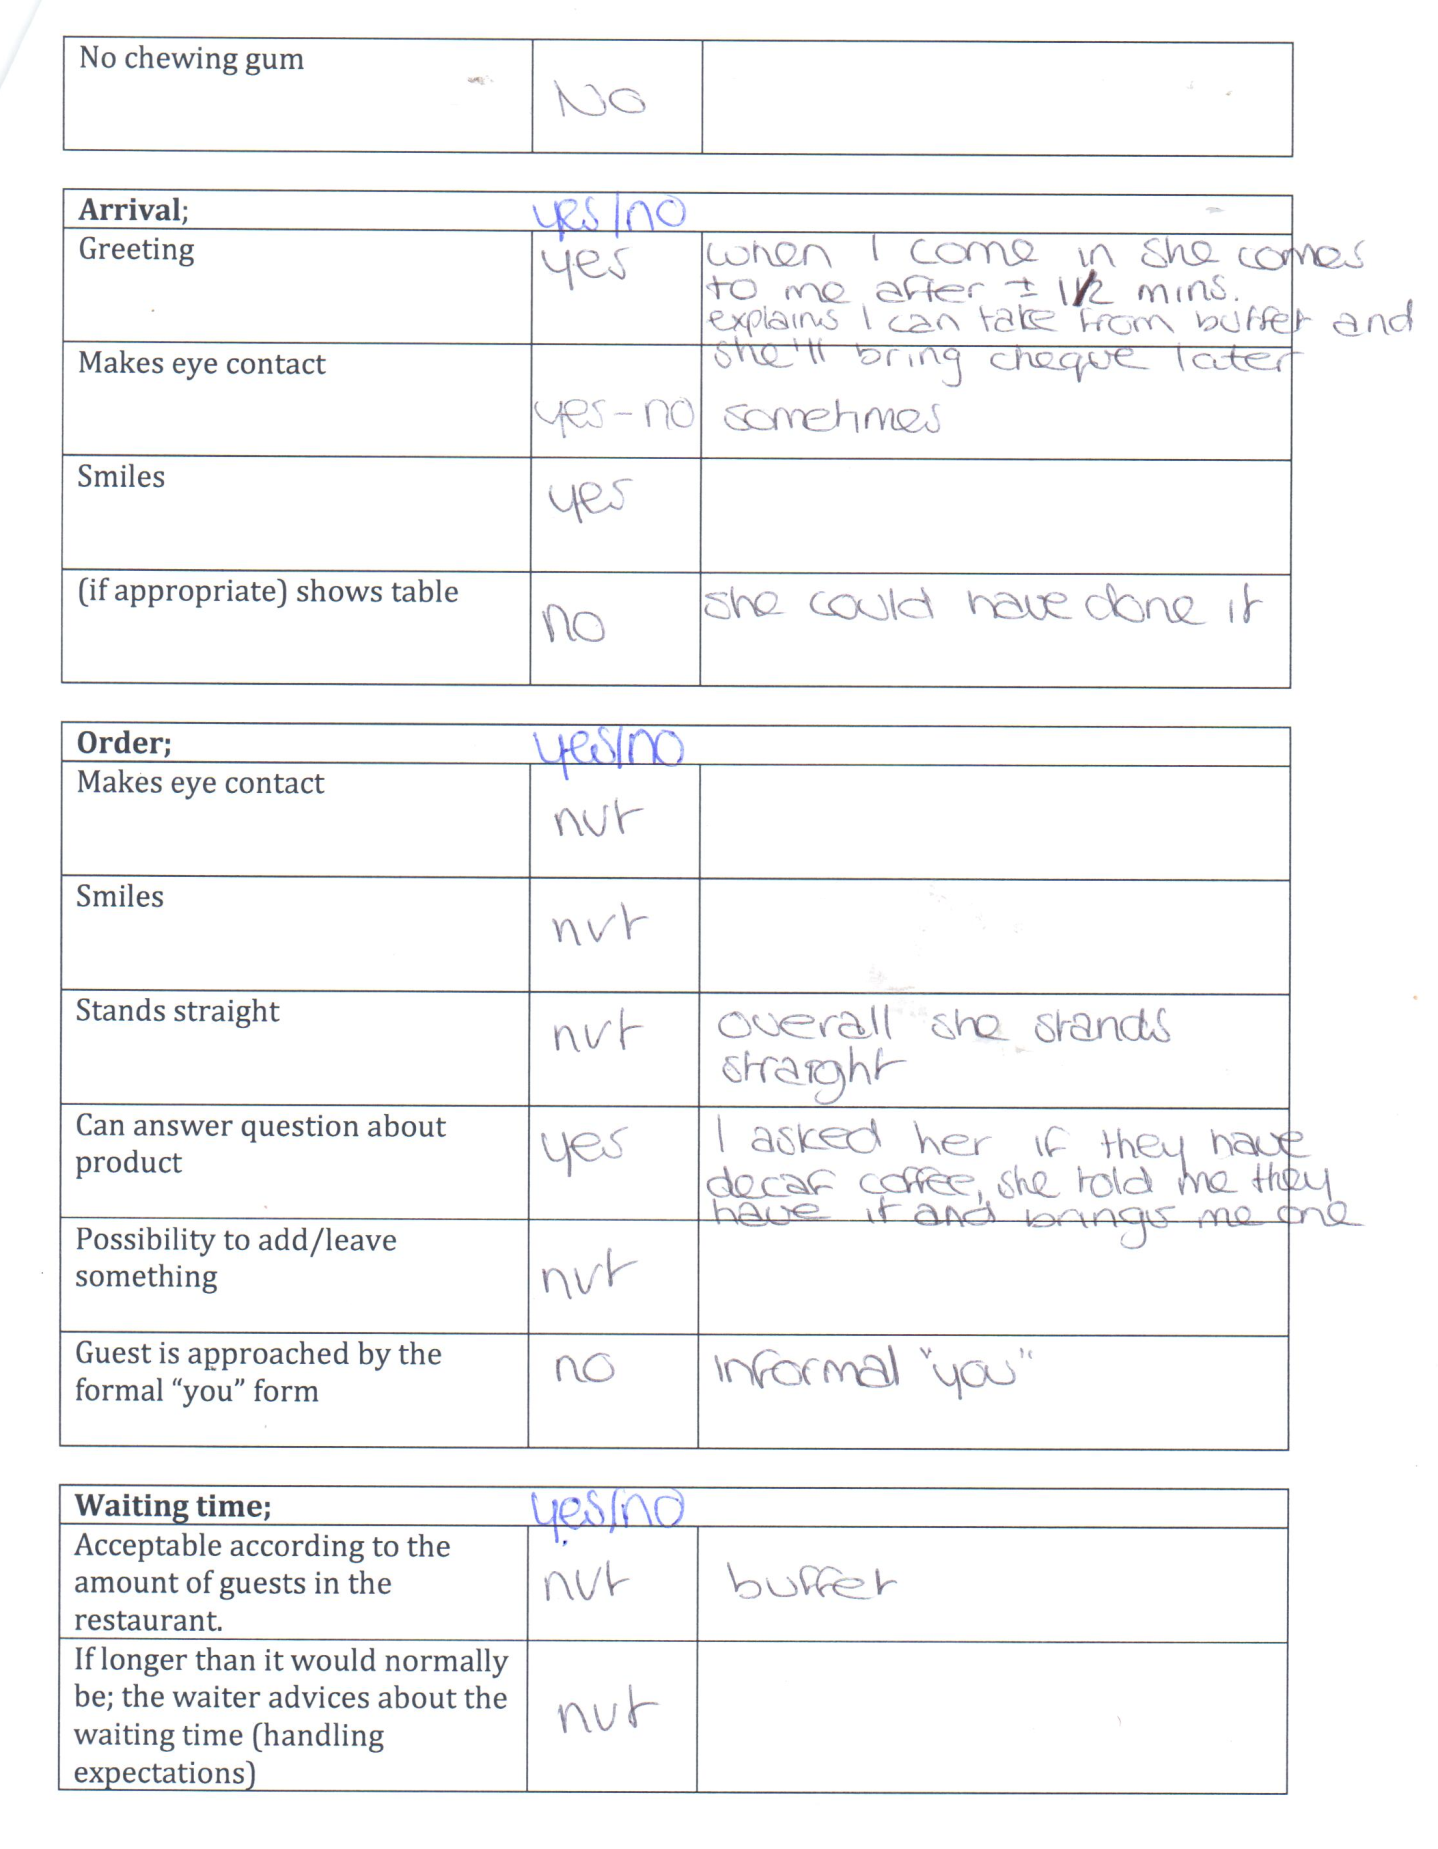 No chewing gum
No
Arrival; yes/no
Greeting
yes
when I come in she comes
to me after ± 1 1/2 mins.
explains I can take from buffet and
she'll bring cheque later
Makes eye contact
yes - no
sometimes
Smiles
yes
(if appropriate) shows table
no
she could have done it
Order; yes/no
Makes eye contact
nvt
Smiles
nvt
Stands straight
nvt
overall she stands
straight
Can answer question about
product
yes
I asked her if they have
decaf coffee, she told me they
have it and brings me one
Possibility to add/leave
something
nvt
Guest is approached by the
formal “you” form
no
informal "you"
Waiting time; yes/no
Acceptable according to the
amount of guests in the
restaurant.
nvt
buffet
If longer than it would normally
be; the waiter advices about the
waiting time (handling
expectations)
nvt